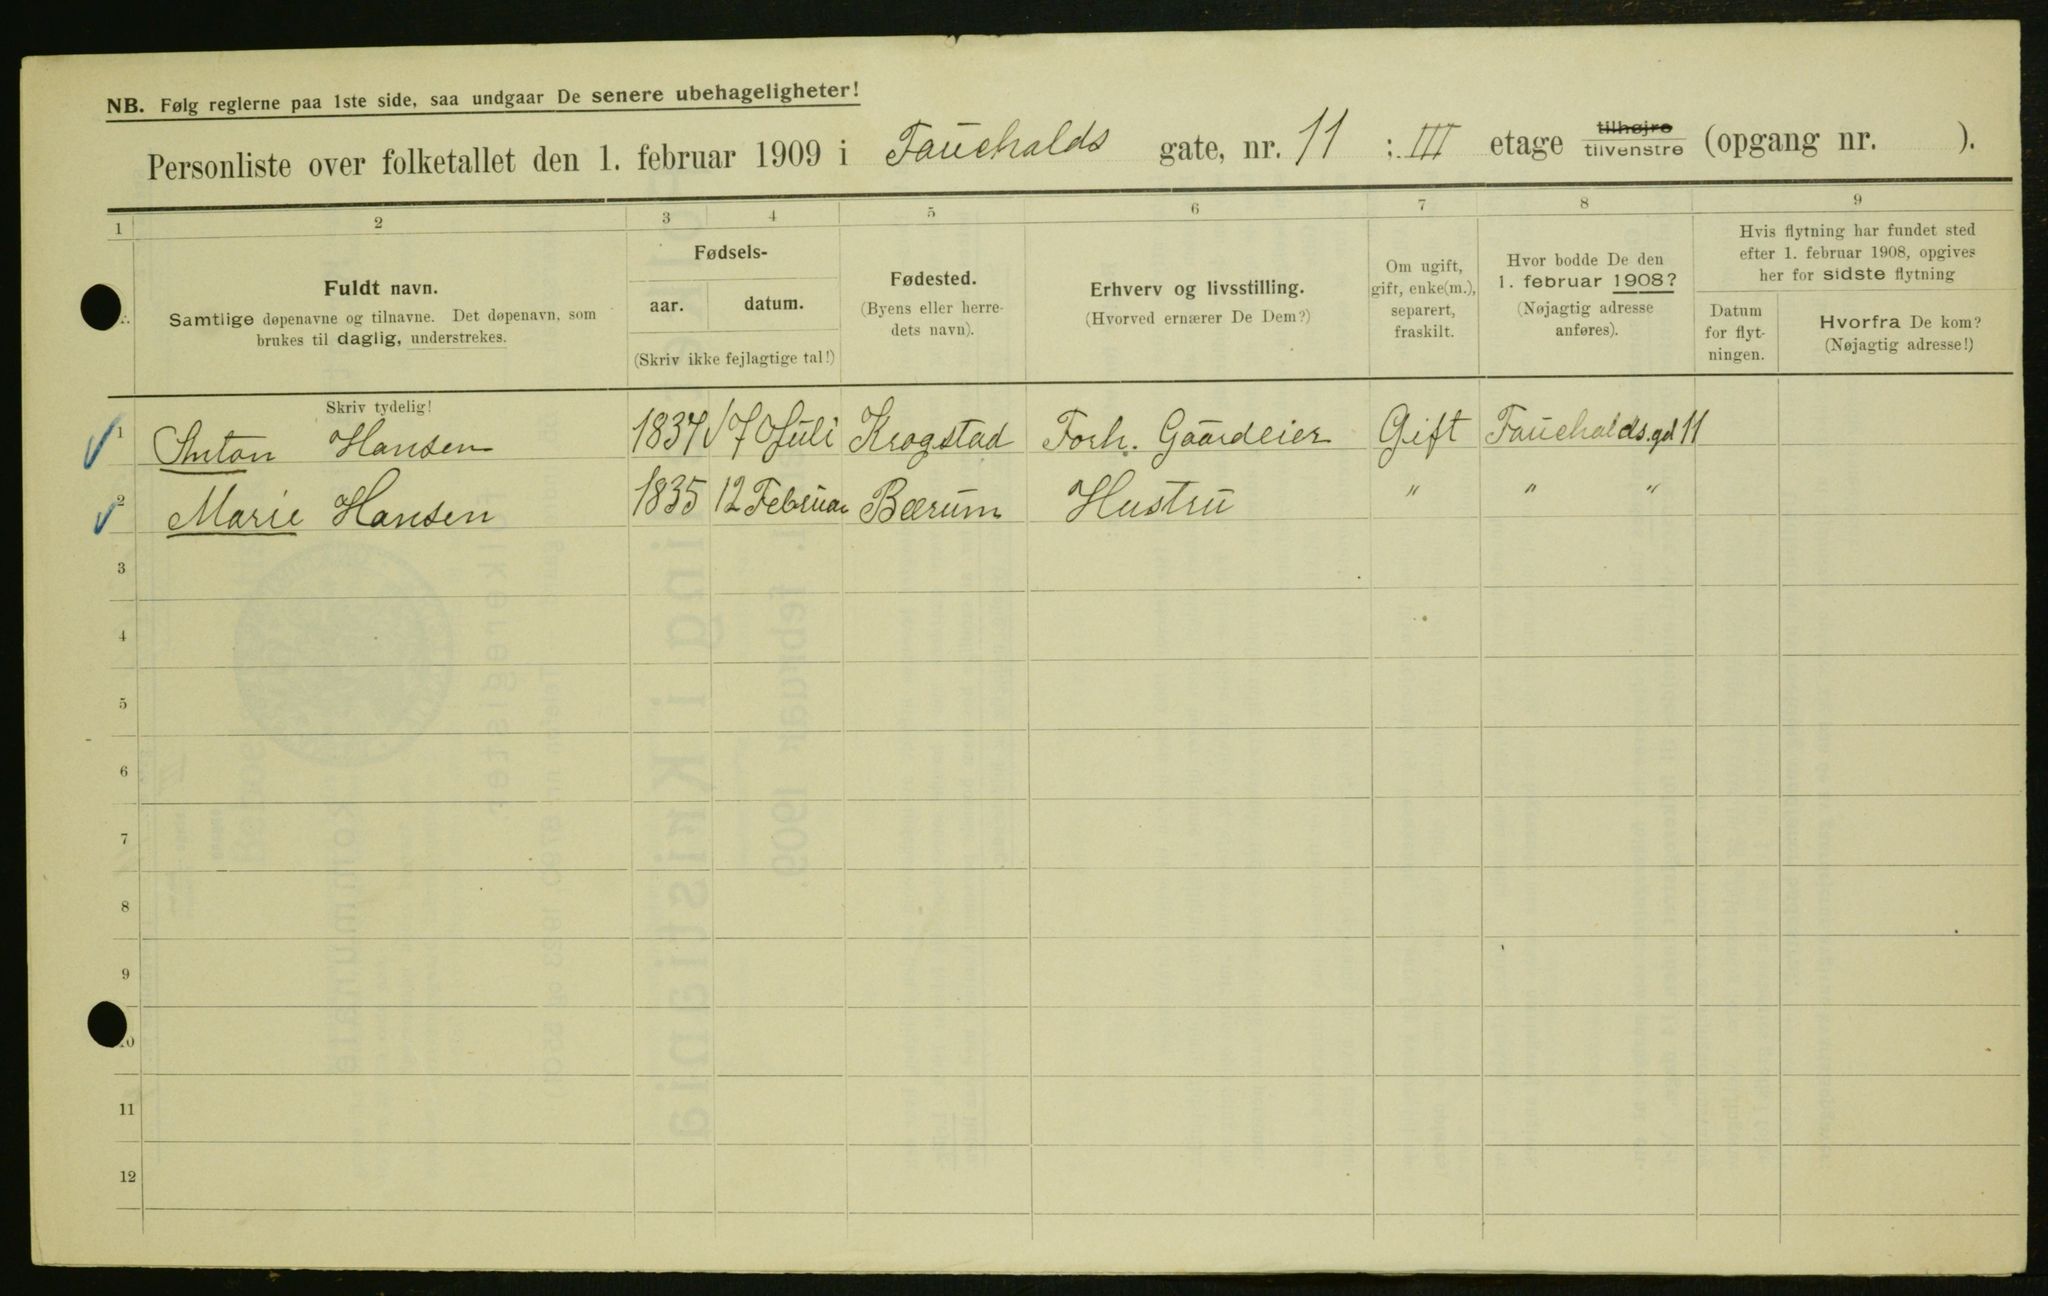 NB. Følg reglerne paa 1ste side, saa undgaar De senere ubehageligheter!
Personliste over folketallet den 1. februar 1909 i Fauchalds gate, nr. 11 ; III etage tilhøjre tilvenstre (opgang nr. ).
1 2 3 4 5 6 7 8 9
Fuldt navn.
Samtlige døpenavne og tilnavne. Det døpenavn, som
brukes til daglig, understrekes.
Skriv tydelig!
Fødsels-
aar. datum.
(Skriv ikke fejlagtige tal!)
Fødested.
(Byens eller herre-
dets navn).
Erhverv og livsstilling.
(Hvorved ernærer De Dem?)
Om ugift,
gift, enke(m.),
separert,
fraskilt.
Hvor bodde De den
1. februar 1908?
(Nøjagtig adresse
anføres).
Hvis flytning har fundet sted
efter 1. februar 1908, opgives
her for sidste flytning
Datum
for flyt-
ningen.
Hvorfra De kom?
(Nøjagtig adresse!)
1 Anton Hansen 1834 17 Juli Krogstad Forh. Gaardeier Gift Fauchalds.gd 11
2 Marie Hansen 1835 12 Februar Bærum Hustru " " "
3
4
5
6
7
8
9
10
11
12